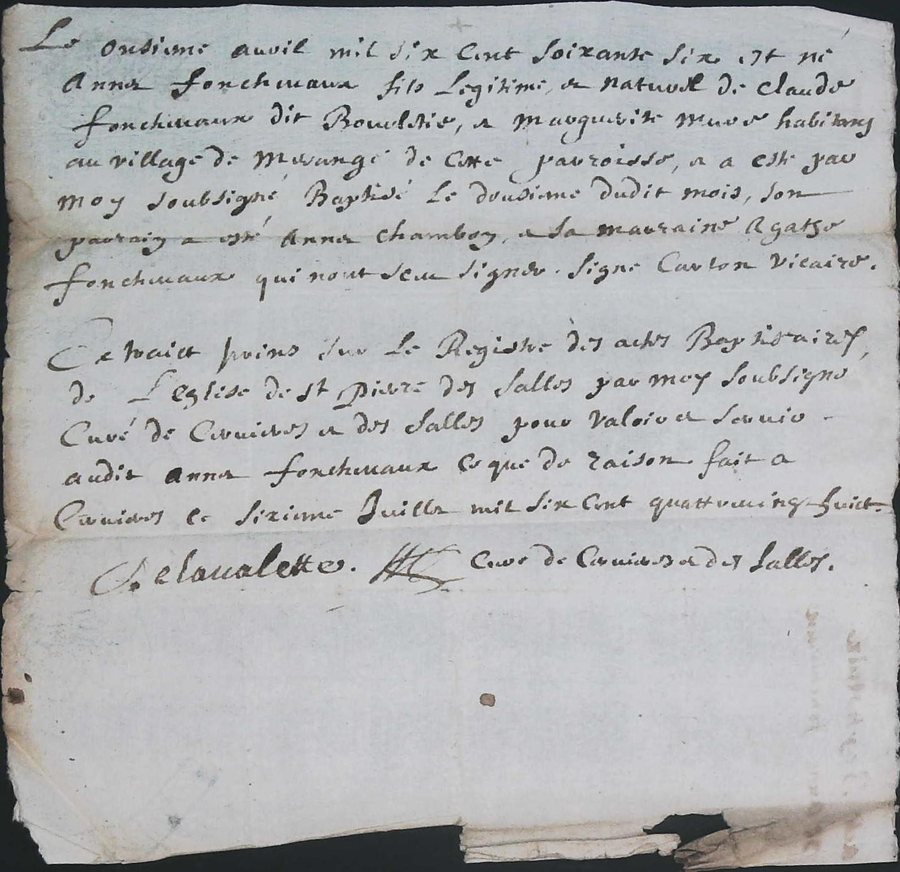 Le onsieme auvil mil six Cent soixante six est né
Annet fonchevaux fils Legitime, et naturel de Claude
fonchevaux dit Boucletie, et marguerite mure habitans
au village de merange de Cette parroisse, et a esté par
moy soubsigné Baptisé Le dousieme dudit mois, son
parrain a esté Annet Chambon, et sa marraine Agathe
fonchevaux qui nont sceu signer. signé Carton vicaire.
Extraict prins sur Le Registre des actes Baptistaires
de L'eglise de st Pierre des salles par moy soubsigné
Curé de Cervieres et des salles pour valoir et servir
audit annet fonchevaux Ce que de raison fait a
Cervieres Ce sixieme Juillet mil six Cent quattrevingt huict.
Delavalette. Curé de Cervieres et des salles.